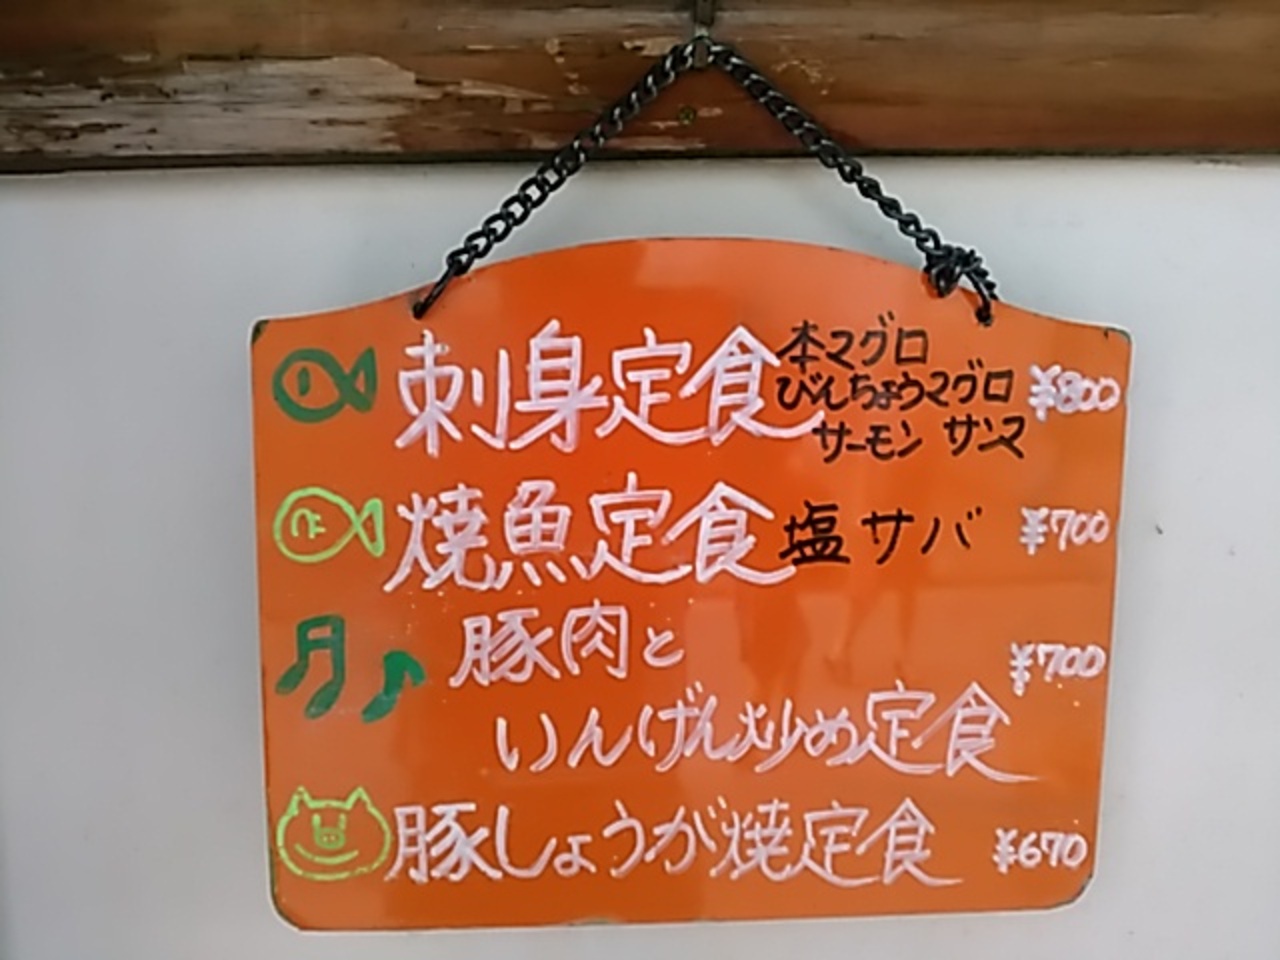 刺身定食 本マグロ
びんちょうマグロ ¥800
サーモン サンマ
焼魚定食 塩サバ ¥700
豚肉と ¥700
いんげん炒め定食
豚しょうが焼定食 ¥670